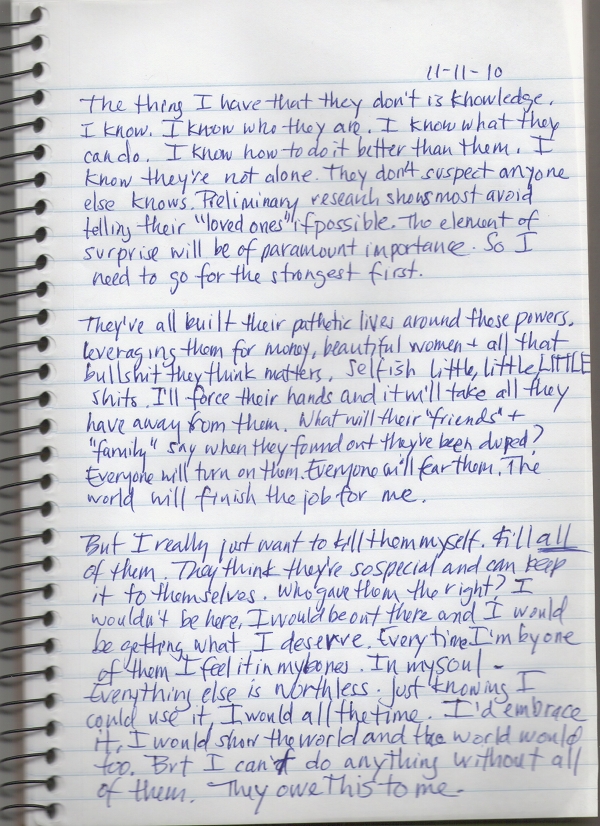 11-11-10
The thing I have that they don't is knowledge.
I know. I know who they are. I know what they
can do. I know how to do it better than them. I
know they're not alone. They don't suspect anyone
else knows. Preliminary research shows most avoid
telling their "loved ones" if possible. The element of
surprise will be of paramount importance. So I
need to go for the strongest first.
They've all built their pathetic lives around those powers.
leveraging them for money, beautiful women + all that
bullshit they think matters. Selfish little, little LITTLE
shits. I'll force their hands and it will take all they
have away from them. What will their "friends" +
"family" say when they found out they've been duped?
Everyone will turn on them. Everyone will fear them. The
world will finish the job for me.
But I really just want to kill them myself. Kill all
of them. They think they're so special and can keep
it to themselves. Who gave them the right? I
wouldn't be here, I would be out there and I would
be getting what I deserve. Every time I'm by one
of them I feel it in my bones. In my soul -
Everything else is worthless. Just knowing I
could use it, I would all the time. I'd embrace
it, I would show the world and the world would
too. But I can't do anything without all
of them. They owe this to me.